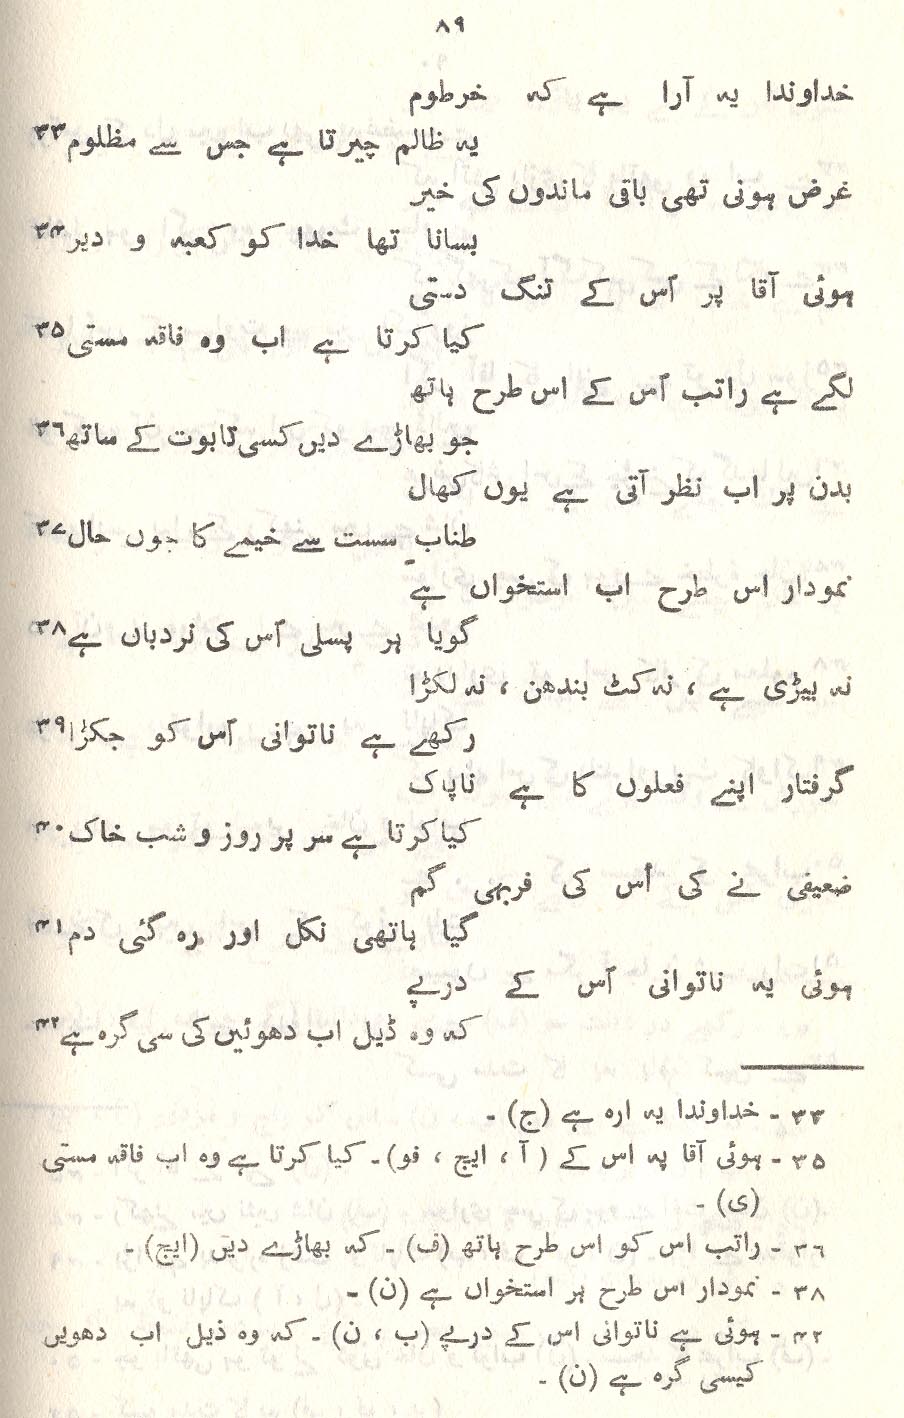 ۸۹
خداوندا یہ آرا ہے کہ خرطوم
یہ ظالم چیرتا ہے جس سے مظلوم ۳۳
غرض ہونی تھی باقی ماندوں کی خیر
بسانا تھا خدا کو کعبہ و دیر ۳۴
ہوئی آقا پر اُس کے تنگ دستی
کیا کرتا ہے اب وہ فاقہ مستی ۳۵
لگے ہے راتب اُس کے اس طرح ہاتھ
جو بھاڑے دیں کسی تابوت کے ساتھ ۳٦
بدن پر اب نظر آتی ہے یوں کھال
طنابِ سست سے خیمے کا جوں حال ۳۷
نمودار اس طرح اب استخواں ہے
گویا ہر پسلی اُس کی نردباں ہے ۳۸
نہ بیڑی ہے ، نہ کٹ بندھن ، نہ لکڑا
رکھے ہے ناتوانی اُس کو جکڑا ۳۹
گرفتار اپنے فعلوں کا ہے ناپاک
کیا کرتا ہے سر پر روز و شب خاک ۴۰
ضعیفی نے کی اُس کی فربہی گم
گیا ہاتھی نکل اور رہ گئی دم ۴۱
ہوئی یہ ناتوانی اُس کے درپے
کہ وہ ڈیل اب دھوئیں کی سی گرہ ہے ۴۲
۳۳ - خداوندا یہ ارہ ہے (ج) -
۳۵ - ہوئی آقا پہ اس کے ( آ ، ایچ ، فو) - کیا کرتا ہے وہ اب فاقہ مستی
(ی) -
۳٦ - راتب اس کو اس طرح ہاتھ (ف) - کہ بھاڑے دیں (ایچ) -
۳۸ - نمودار اس طرح ہر استخواں ہے (ن) -
۴۲ - ہوئی ہے ناتوانی اس کے درپے (ب ، ن) - کہ وہ ذیل اب دھویں
کیسی گرہ ہے (ن) -